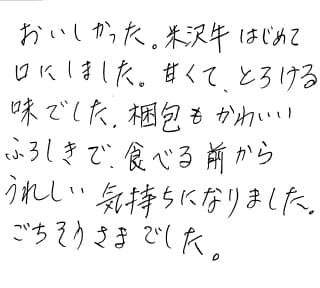 おいしかった。米沢牛はじめて
口にしました。甘くて、とろける
味でした。梱包もかわいい
ふろしきで、食べる前から
うれしい気持ちになりました。
ごちそうさまでした。